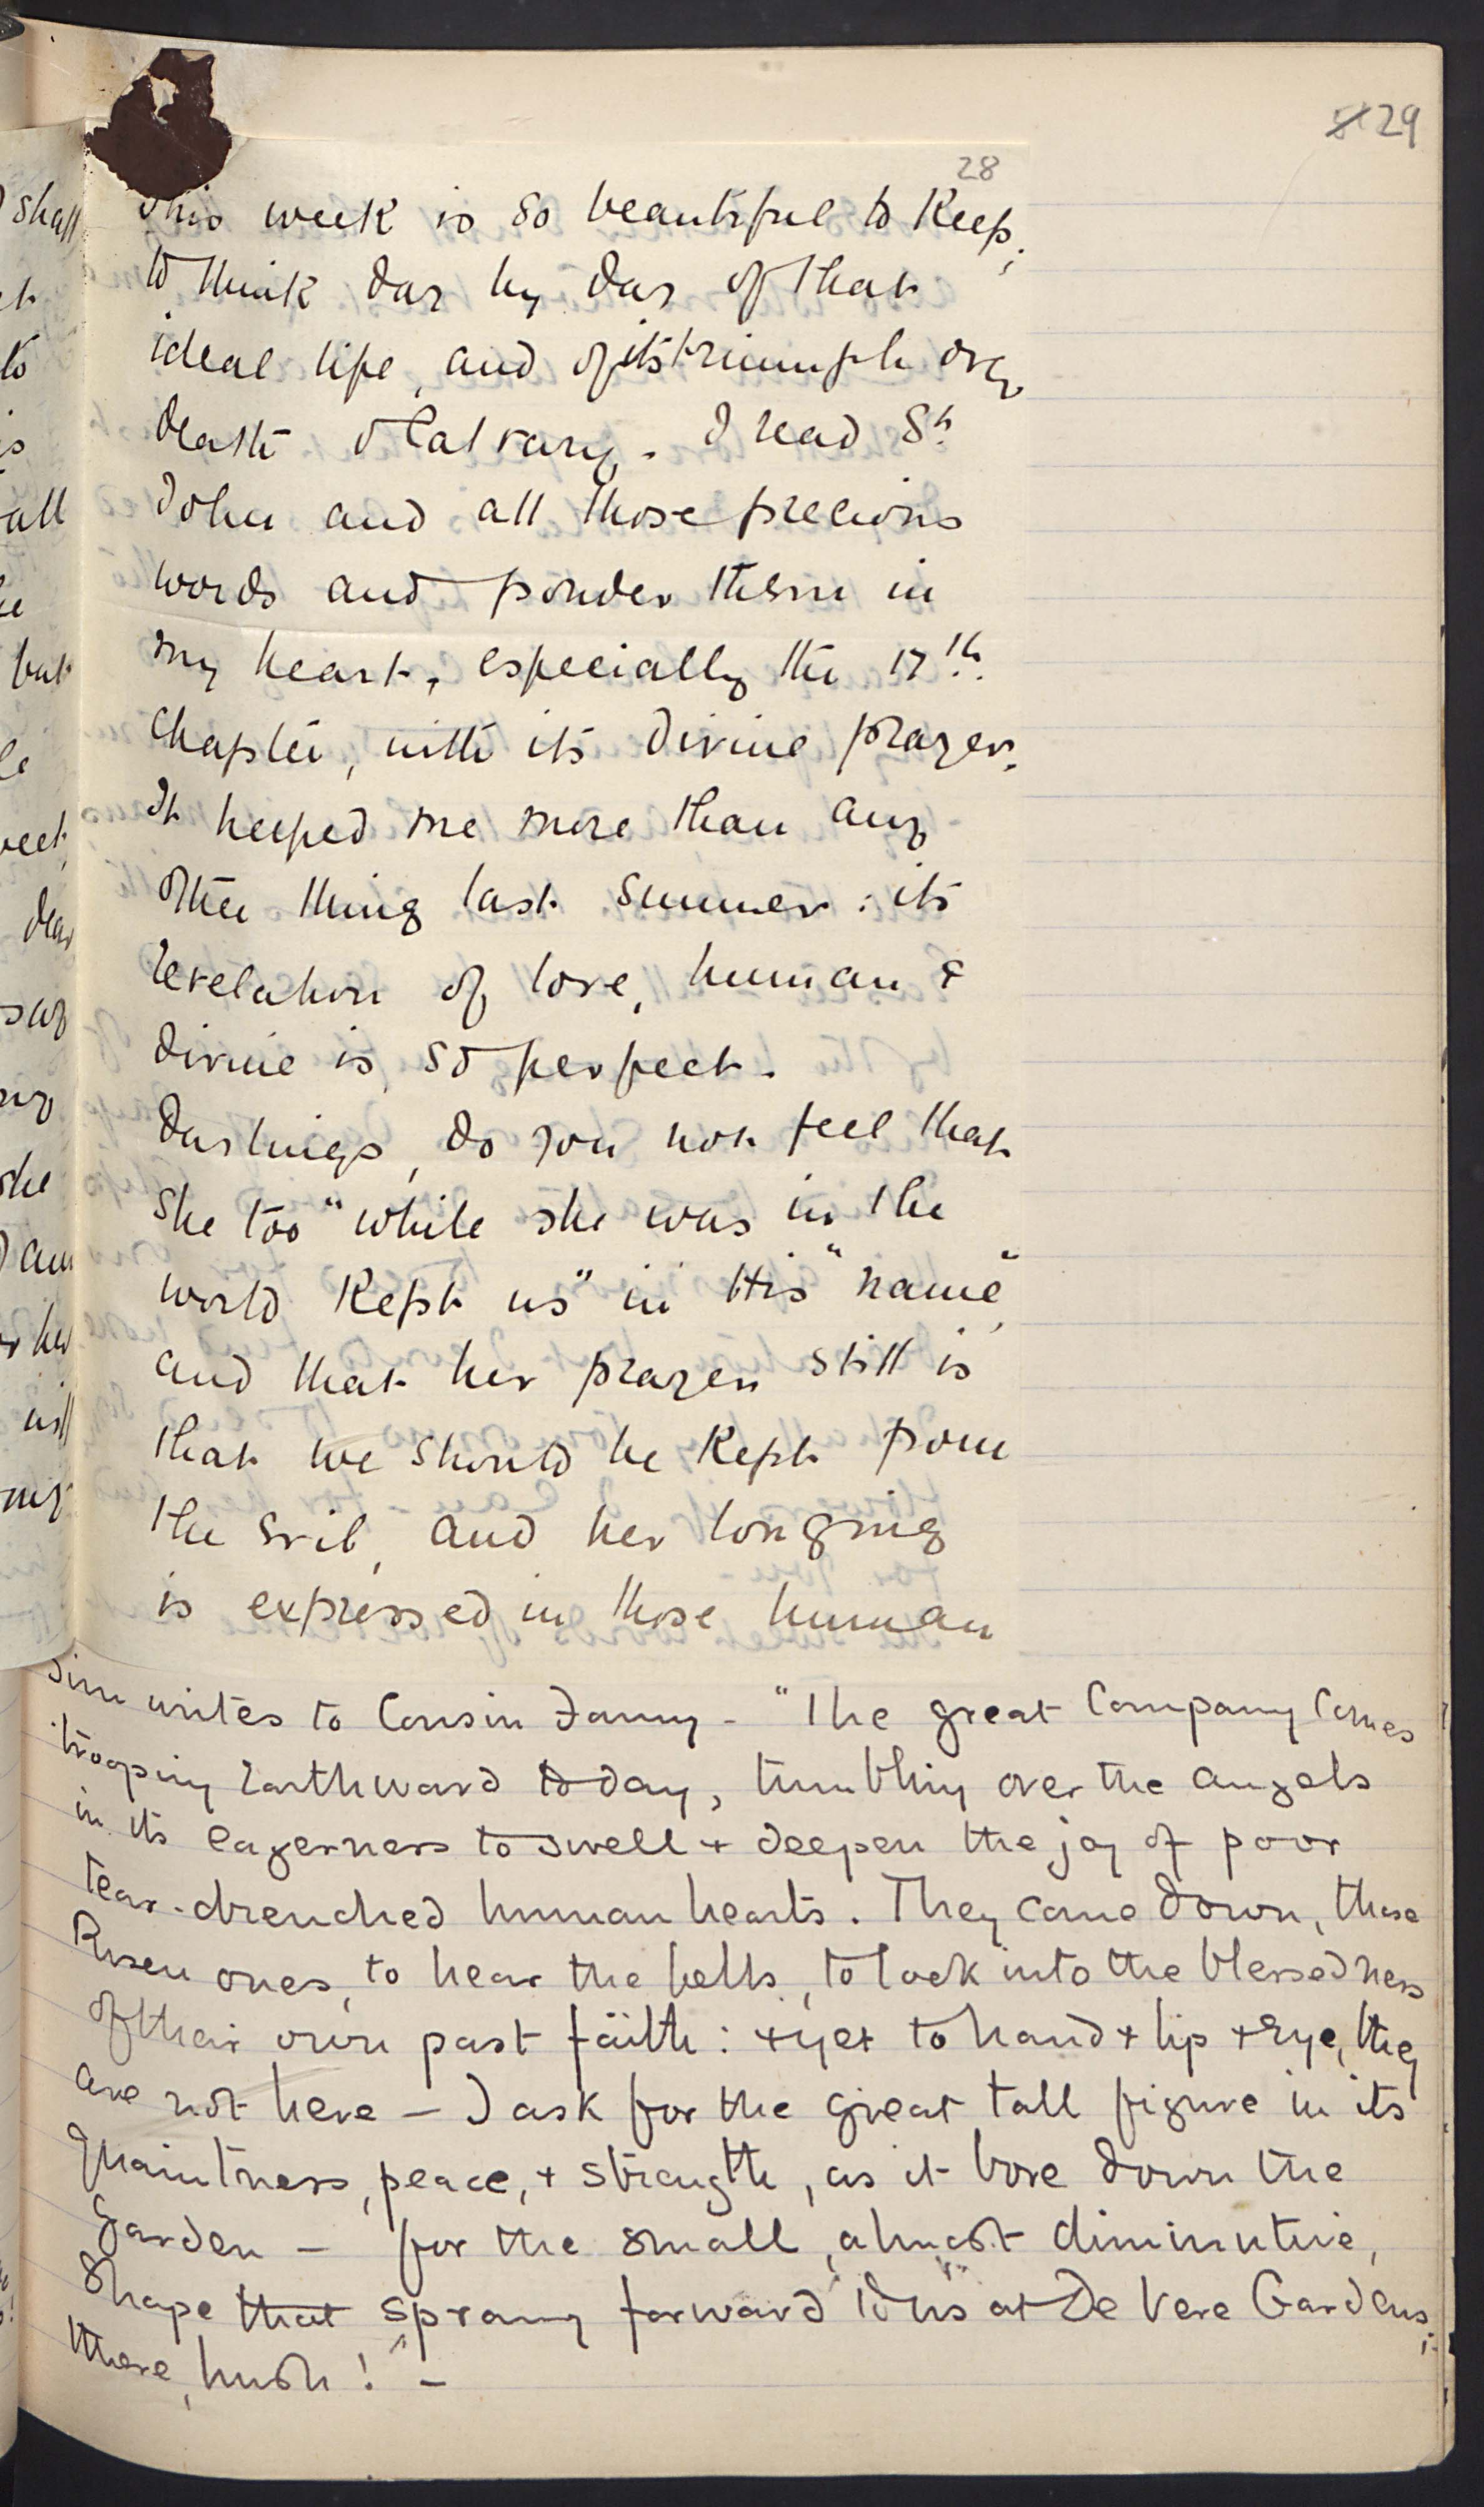 29
28
This week is so beautiful to keep;
to think day by day of that
ideal life, and of its triumph over
death & Calvary. I read St.
John and all those precious
words and ponder them in
my heart, especially the 17th.
Chapter, with its divine prayer.
It helped me more than any
other thing last summer: its
revelation of love, human &
divine is so perfect.
Darlings, do you not feel that
she too "while she was in the
world kept us" in His "name",
and that her prayer still is
that we should be kept from
the evil, and her longing
is expressed in those human
Sim writes to Cousin Fanny - "The great Company comes
trooping earthward today, tumbling over the angels
in its eagerness to swell + deepen the joy of poor
tear-drenched human hearts. They come down, these
Risen ones, to hear the bells, to look into the blessedness
of their own past faith: + yet to hand + lip + eye, they
are not here — I ask for the great tall figure in its
quaintness, peace, + strength, as it bore down the
Garden — for the small, almost diminutive,
shape that sprang forward to us at De Vere Gardens;-
there, hush!" -